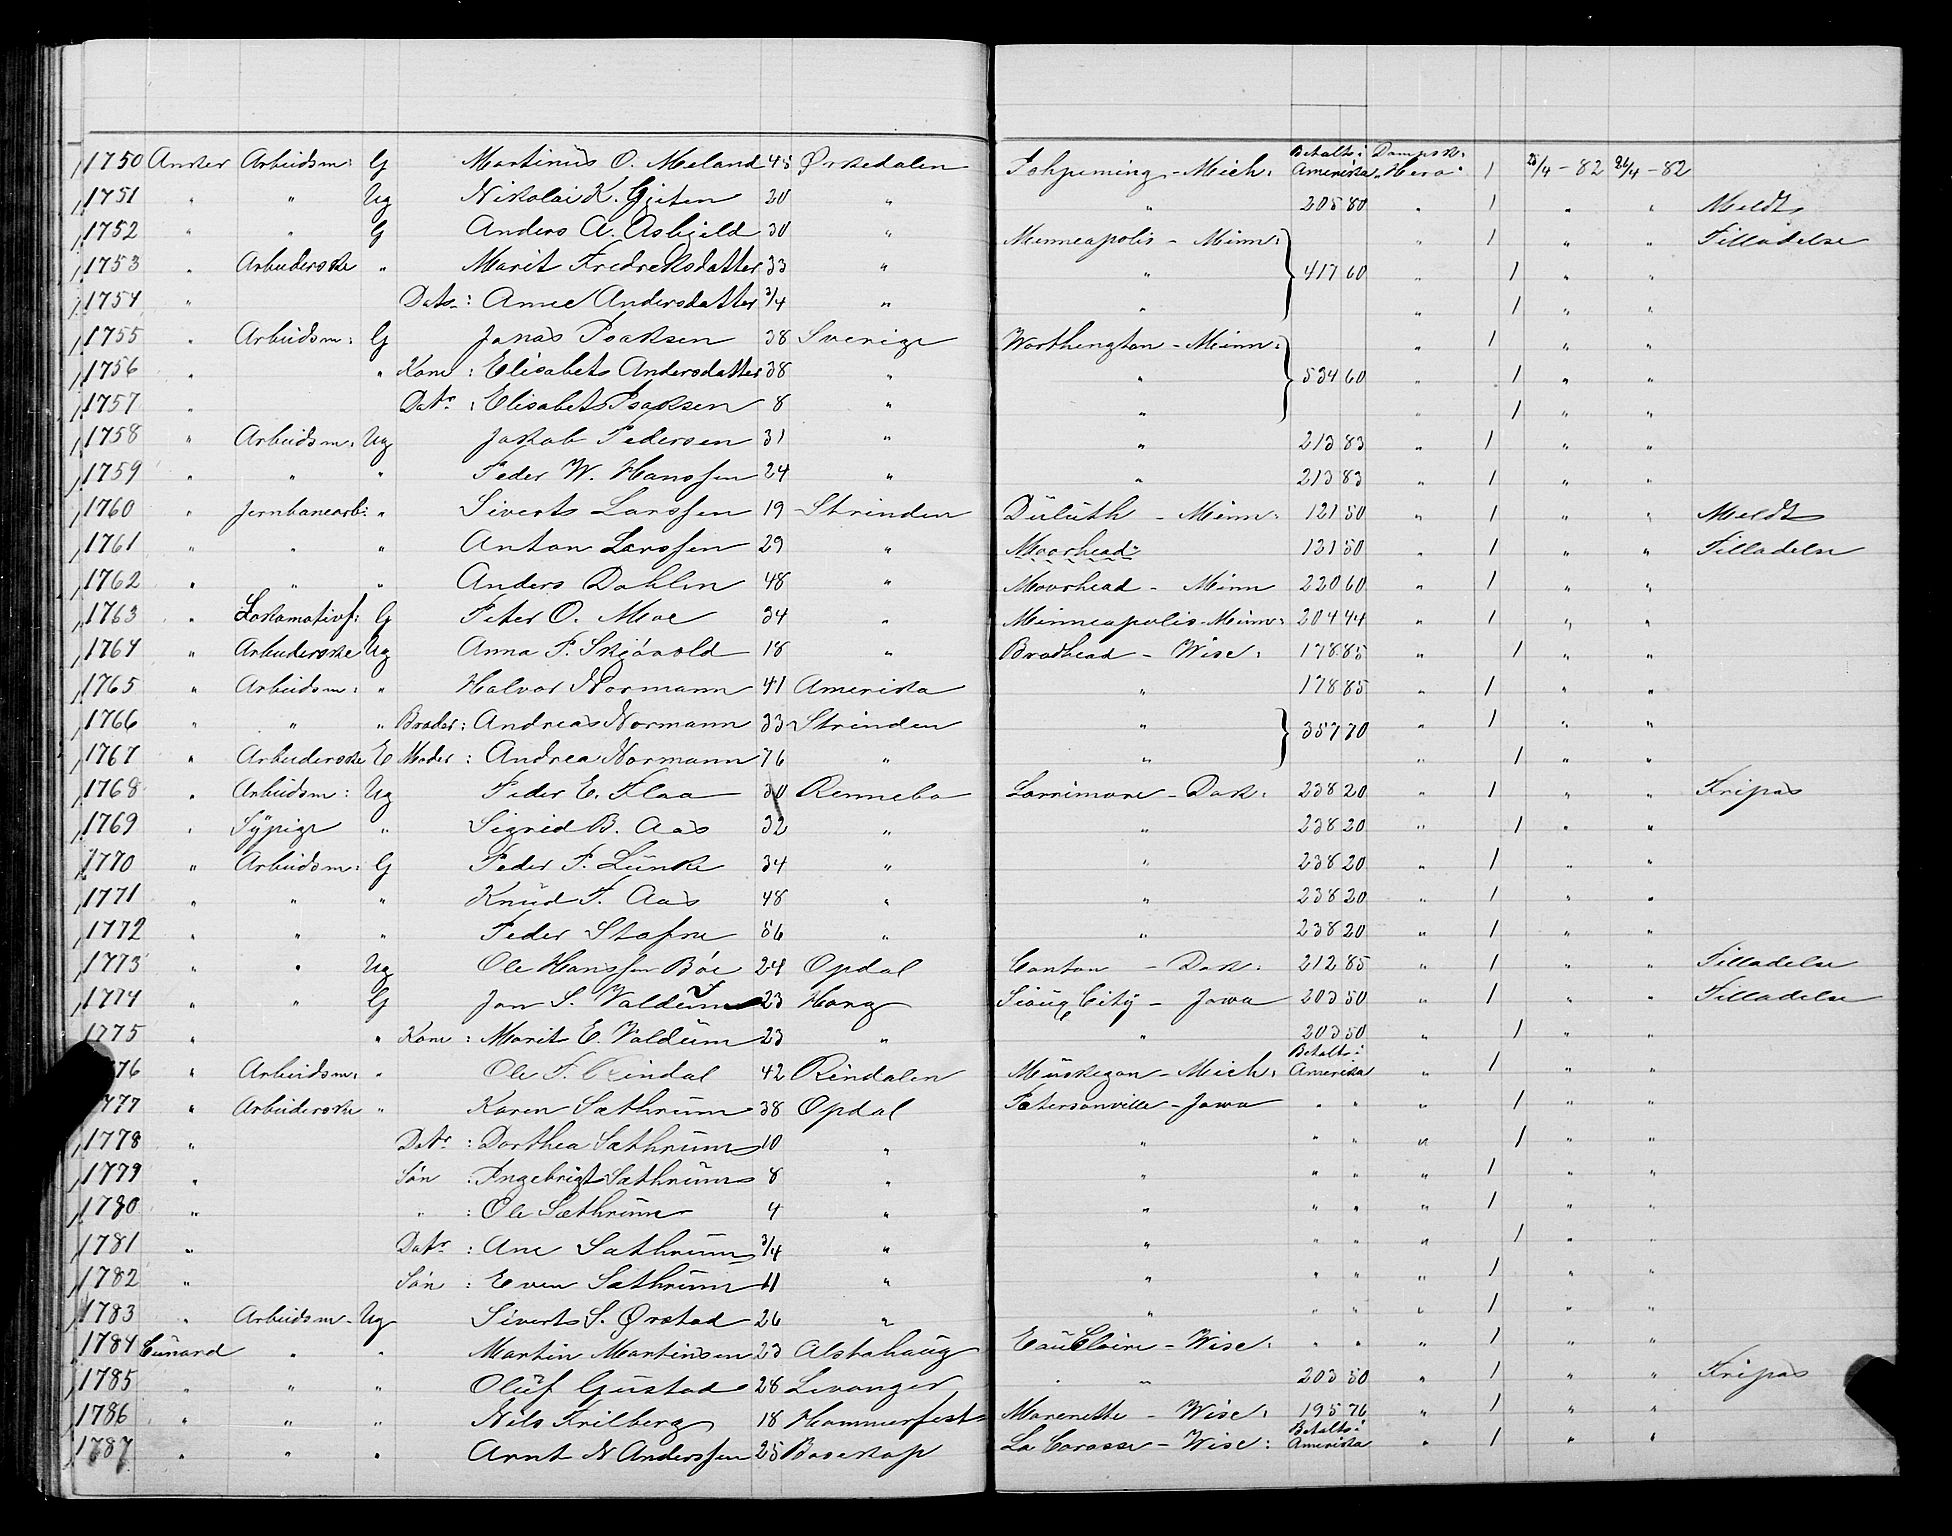 1750 Anker Arbeidsm: G Martinus O. Meland 45 Orkedalen Ishpeming - Mich: Betalt i Amerika Dampsk: "Hero" 1 25/4 - 82 26/4 - 82
1751 " " Ug Nikolai K. Gjeten 20 " " 205 80 " 1 " " Meldt
1752 " " G Anders A. Asbjeld 30 " Minneapolis - Minn: " 1 " " Tilladelse
1753 " Arbeiderske " Marit Fredreksdatter 33 " " 417 60 " 1 " "
1754 " Datr: Anne Andersdatter 3/4 " " " 1 " "
1755 " Arbeidsm: G Jonas Isaksen 38 Sverige Worthington - Minn: " 1 " "
1756 " " Kone: Elisabets Andersdatter 38 " " 534 60 " 1 " "
1757 " Datr: Elisabets Isaksen 8 " " " 1 " "
1758 " Arbeidsm: Ug Jakob Pedersen 31 " " 213 83 " 1 " "
1759 " " " Peder W. Hanssen 24 " " 213 83 " 1 " "
1760 " Jernbanearb: " Siverts Larssen 19 Strinden Duluth - Minn: 121 50 " 1 " " Meldt
1761 " " " Anton Larssen 29 " Moorhead: 131 50 " 1 " " Tilladelse
1762 " " " Anders Dahlin 48 " Moorhead - Minn 220 60 " 1 " "
1763 " Lokomotivf: G Peter O. Moe 34 " Minneapolis - Minn: 204 44 " 1 " "
1764 " Arbeiderske Ug Anna P. Skjörold 18 " Brodhead - Wisc: 178 85 " 1 " "
1765 " Arbeidsm: " Halvor Normann 41 Amerika " 178 85 " 1 " "
1766 " " " Broder: Andreas Normann 33 Strinden " 357 70 " 1 " "
1767 " Arbeiderske E Moder: Andrea Normann 76 " " " 1 " "
1768 " Arbeidsm: Ug Peder E. Flaa 30 Rennebo Larrimore - Dak: 238 20 " 1 " " Fripas
1769 " Sypige " Sigrid B. Aas 32 " " 238 20 " 1 " "
1770 " Arbeidsm: G Peder P. Lunke 34 " " 238 20 " 1 " "
1771 " " " Knud F. Aas 48 " " 238 20 " 1 " "
1772 " " " Peder Stafne 56 " " 238 20 " 1 " "
1773 " " Ug Ole Hanssen Böe 24 Opdal Canton - Dak: 212 85 " 1 " " Tilladelse
1774 " " G Jon S. Valdum 23 Horg Sioux City - Jowa 203 50 " 1 " " Tilladelse
1775 " " Kone: Marit E. Valdum 23 " " 203 50 " 1 " "
76 " Arbeidsm: " Ole T. Rindal 42 Rindalen Muskegon - Mich: Betalt i Amerika " 1 " "
1777 " Arbeiderske " Karen Sæthrum 38 Opdal Petersonville - Jowa " " " 1 " "
1778 " Datr: Dorthea Sæthrum 10 " " " " " 1 " "
1779 " Sön: Ingebrigt Sæthrum 8 " " " " " 1 " "
1780 " ": Ole Sæthrum 4 " " " " " 1 " "
1781 " Datr: Ane Sæthrum 3/4 " " " " " 1 " "
1782 " Sön: Even Sæthrum 11 " " " " " 1 " "
1783 " Arbeidsm - Ug Siverts S. Ørstad 26 " " " " " 1 " "
1784 Cunard " " Martin Martinsen 23 Alstahaug Eau Claire - Wisc: " " " 1 " "
1785 " " " Oluf Gustad 28 Levanger " 203 50 " 1 " " Fripas
1786 " " " Nils Krilberg 18 Hammerfest Marenette - Wisc: 195 76 " 1 " "
1787 " " " Arnt N Anderssen 25 Bosekop La Crosse - Wisc: Betalt i Amerika " 1 " "